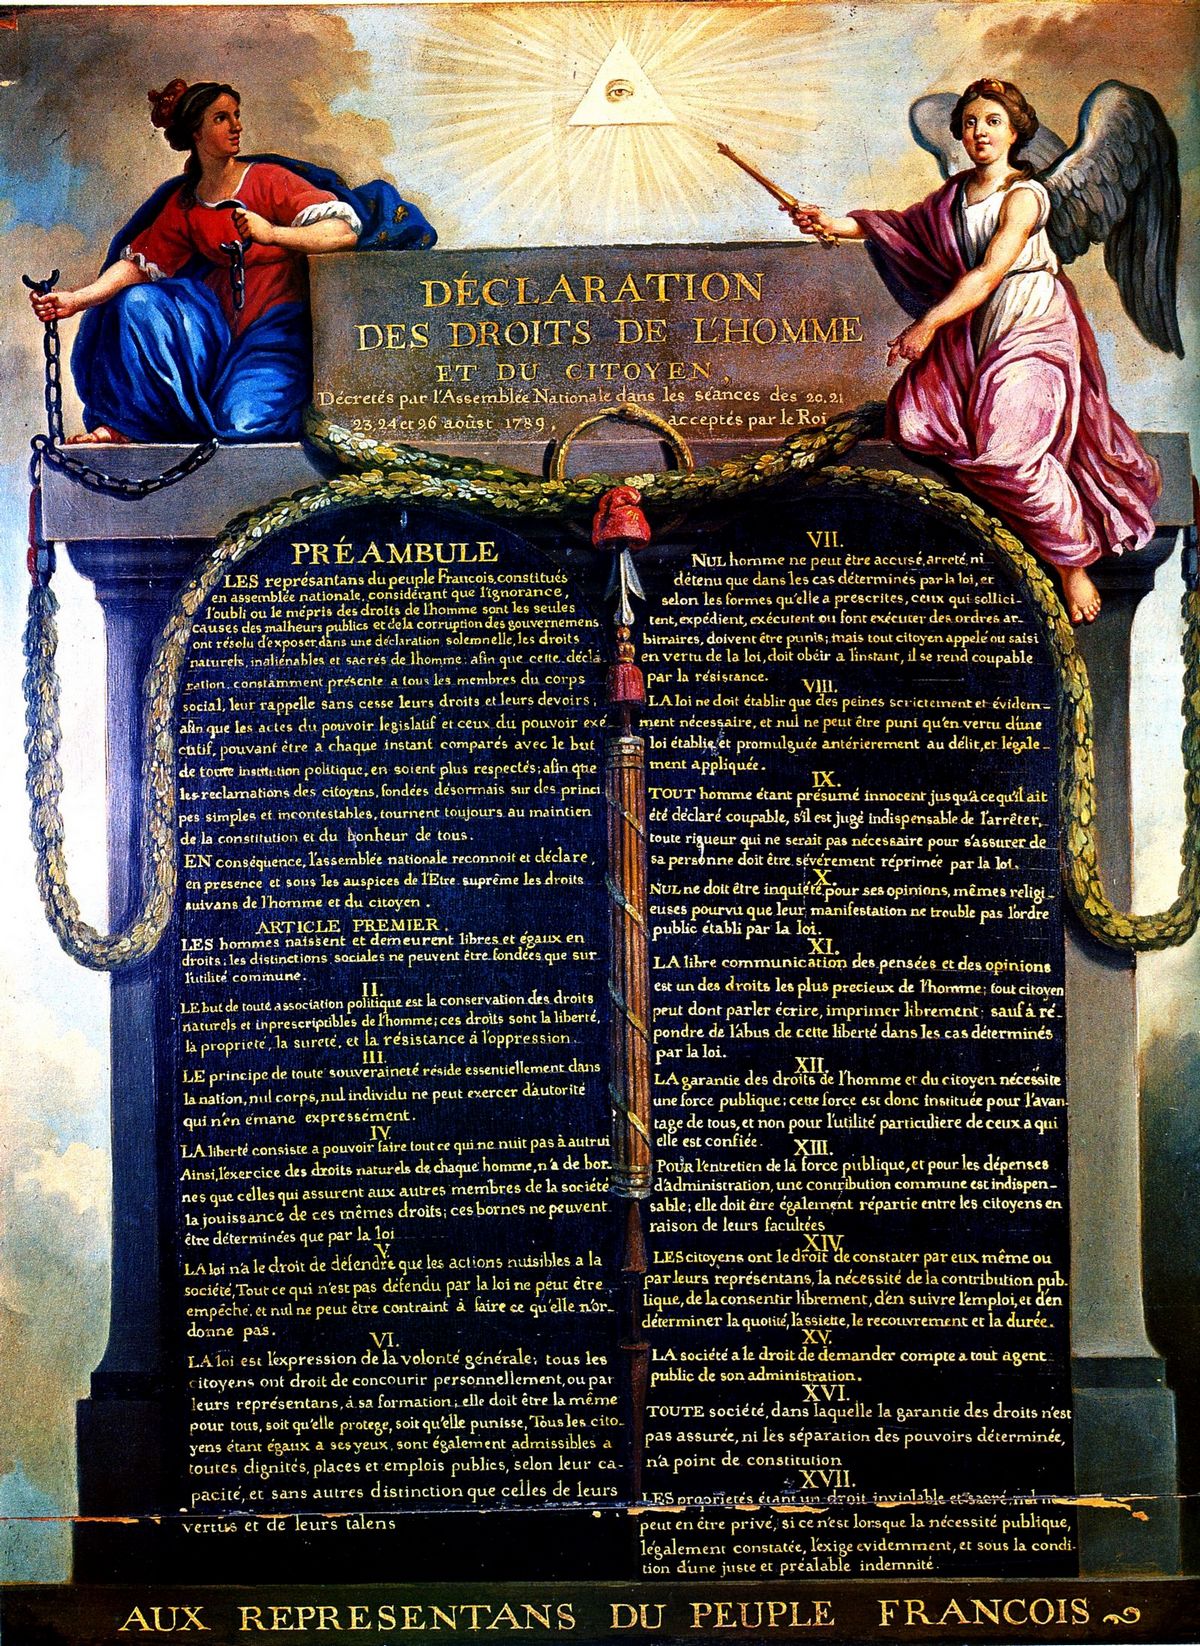 DÉCLARATION
DES DROITS DE L'HOMME
ET DU CITOYEN,
Décretés par l'Assemblée Nationale dans les séances des 20.21
23, 24 et 26 aoûst 1789, acceptés par le Roi
PRÉAMBULE
LES représantans du peuple Francois, constitués
en assemblée nationale, considérant que l'ignorance,
l'oubli ou le mépris des droits de l'homme sont les seules
causes des malheurs publics et de la corruption des gouvernemens
ont résolu d'exposer dans une déclaration solemnelle, les droits
naturels, inaliénables et sacrés de l'homme: afin que cette décla-
ration, constamment présente a tous les membres du corps
social, leur rappelle sans cesse leurs droits et leurs devoirs;
afin que les actes du pouvoir législatif et ceux du pouvoir exé-
cutif, pouvant être a chaque instant comparés avec le but
de toute institution politique, en soient plus respectés; afin que
les reclamations des citoyens, fondées désormais sur des princi
pes simples et incontestables, tournent toujours au maintien
de la constitution et du bonheur de tous.
EN conséquence, l'assemblée nationale reconnoit et déclare,
en presence et sous les auspices de l'Etre suprême les droits
suivans de l'homme et du citoyen.
ARTICLE PREMIER.
LES hommes naissent et demeurent libres et égaux en
droits; les distinctions sociales ne peuvent être fondées que sur
l'utilité commune.
II.
LE but de toute association politique est la conservation des droits
naturels et inprescriptibles de l'homme; ces droits sont la liberté,
la propriete, la sureté, et la résistance à l'oppression.
III.
LE principe de toute souveraineté réside essentiellement dans
la nation, nul corps, nul individu ne peut exercer d'autorité
qui n'en émane expressément.
IV.
LA liberté consiste a pouvoir faire tout ce qui ne nuit pas à autrui
Ainsi, l'exercice des droits naturels de chaque homme, n'a de bor-
nes que celles qui assurent aux autres membres de la société
la jouissance de ces mêmes droits; ces bornes ne peuvent
être déterminées que par la loi
V.
LA loi n'a le droit de défendre que les actions nuisibles a la
société, Tout ce qui n'est pas défendu par la loi ne peut être
empêché, et nul ne peut être contraint à faire ce qu'elle n'or-
donne pas.
VI.
LA loi est l'expression de la volonté générale; tous les
citoyens ont droit de concourir personnellement, ou par
leurs représentans, à sa formation; elle doit être la même
pour tous, soit qu'elle protege, soit qu'elle punisse, Tous les cito-
yens étant égaux a ses yeux, sont également admissibles a
toutes dignités, places et emplois publics, selon leur ca-
pacité, et sans autres distinction que celles de leurs
vertus et de leurs talens
VII.
NUL homme ne peut être accusé, arreté, ni
détenu que dans les cas déterminés par la loi, et
selon les formes qu'elle a prescrites, ceux qui sollici-
tent, expédient, exécutent ou font exécuter des ordres ar-
bitraires, doivent être punis; mais tout citoyen appelé ou saisi
en vertu de la loi, doit obéir a l'instant, il se rend coupable
par la résistance.
VIII.
LA loi ne doit établir que des peines strictement et évidem-
ment nécessaire, et nul ne peut être puni qu'en vertu d'une
loi établie et promulguée antérierement au délit, et légale-
ment appliquée.
IX.
TOUT homme étant présumé innocent jusqu'a ce qu'il ait
été déclaré coupable, s'il est jugé indispensable de l'arrêter,
toute rigueur qui ne serait pas nécessaire pour s'assurer de
sa personne doit être sévèrement réprimée par la loi.
X.
NUL ne doit être inquiété pour ses opinions, mêmes religi-
euses pourvu que leur manifestation ne trouble pas l'ordre
public établi par la loi.
XI.
LA libre communication des pensées et des opinions
est un des droits les plus precieux de l'homme; tout citoyen
peut dont parler écrire, imprimer librement; sauf à ré-
pondre de l'abus de cette liberté dans les cas déterminés
par la loi.
XII.
LA garantie des droits de l'homme et du citoyen nécessite
une force publique; cette force est donc instituée pour l'avan-
tage de tous, et non pour l'utilité particuliere de ceux a qui
elle est confiée.
XIII.
POUR l'entretien de la force publique, et pour les dépenses
d'administration, une contribution commune est indispen-
sable; elle doit être également répartie entre les citoyens en
raison de leurs facultées
XIV.
LES citoyens ont le droit de constater par eux même ou
par leurs représentans, la nécessité de la contribution pub-
lique, de la consentir librement, d'en suivre l'emploi, et d'en
déterminer la quotité, l'assiette, le recouvrement et la durée.
XV.
LA société a le droit de demander compte a tout agent
public de son administration.
XVI.
TOUTE société, dans laquelle la garantie des droits n'est
pas assurée, ni les séparation des pouvoirs déterminée,
n'a point de constitution
XVII.
LES proprietés étant un droit inviolable et sacré, nul ne
peut en être privé, si ce n'est lorsque la nécessité publique,
légalement constatée, l'exige evidemment, et sous la condi-
tion d'une juste et préalable indemnité.
AUX REPRESENTANS DU PEUPLE FRANCOIS